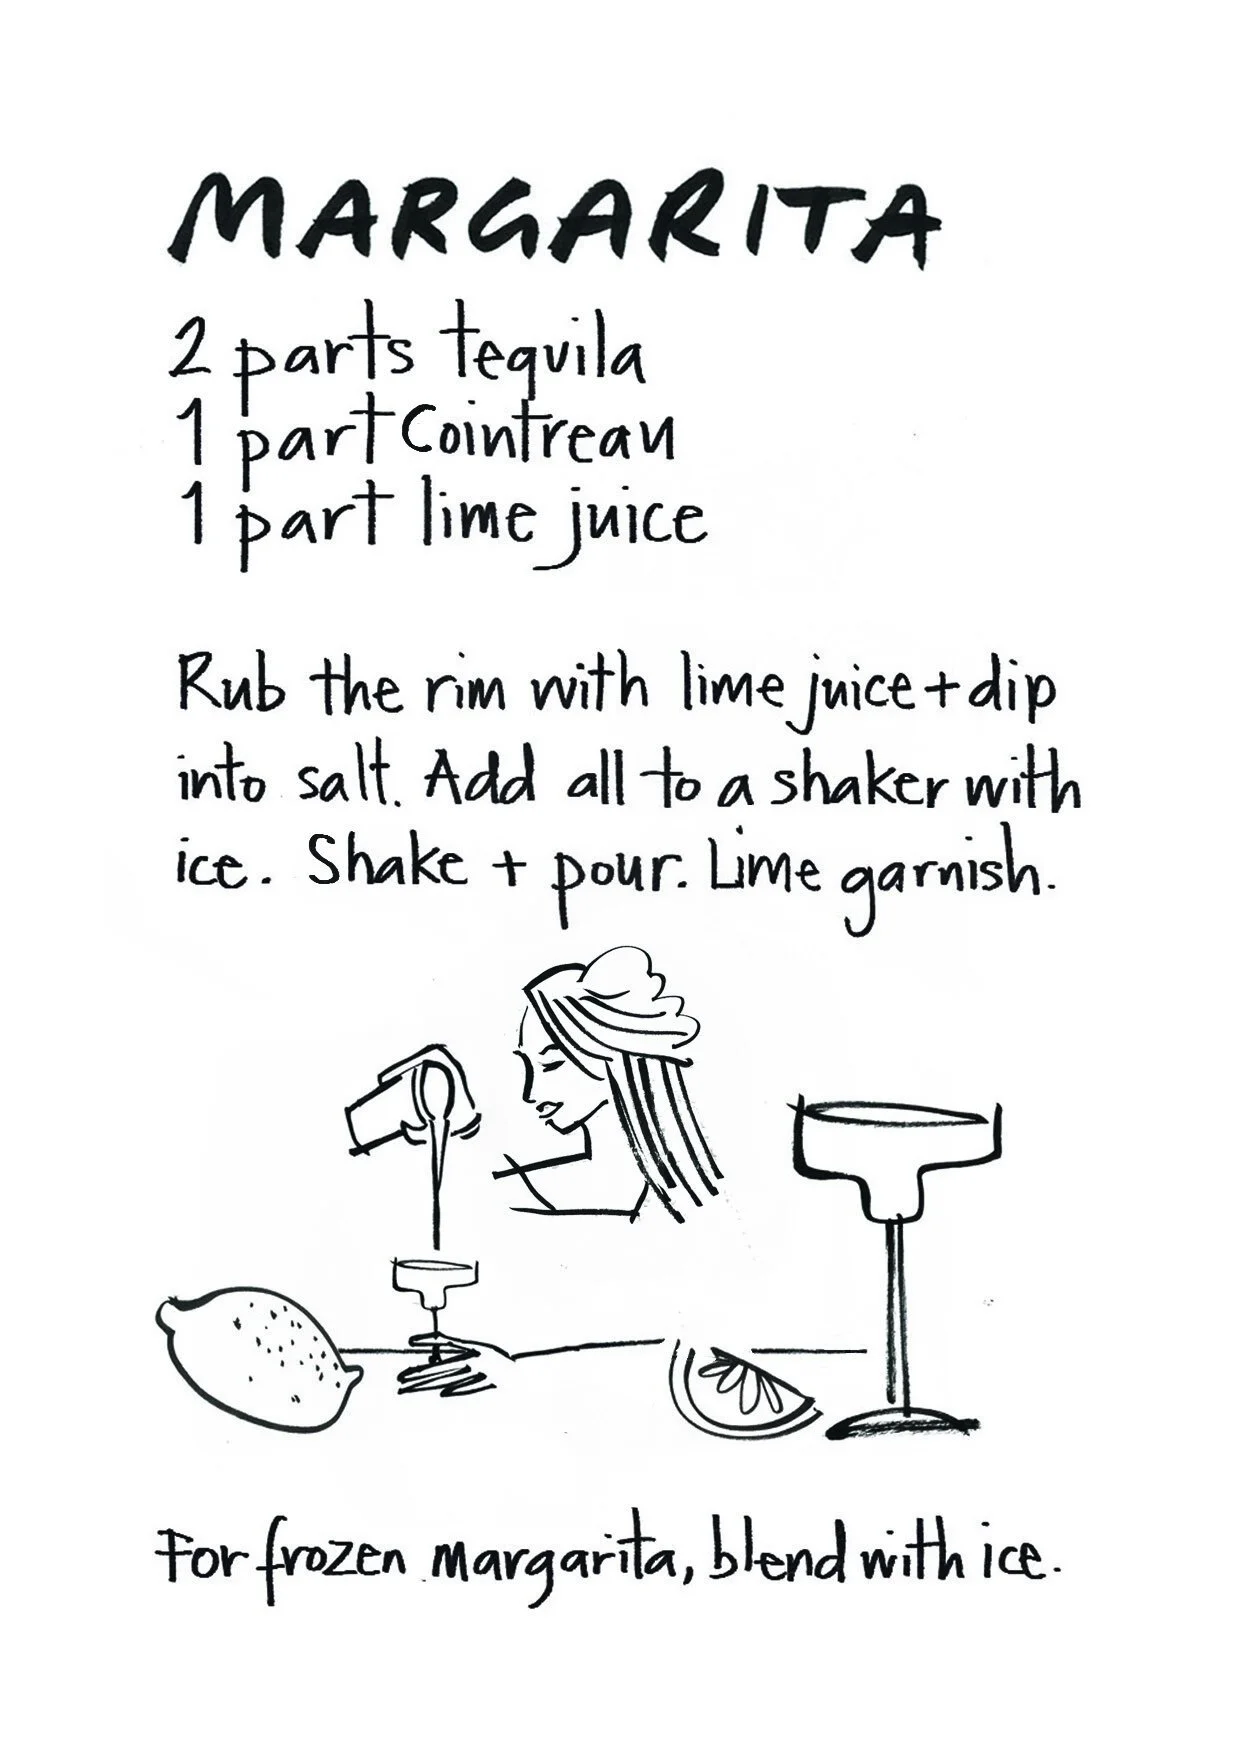 MARGARITA
2 parts tequila
1 part Cointreau
1 part lime juice
Rub the rim with lime juice + dip
into salt. Add all to a shaker with
ice. Shake + pour. Lime garnish.
For frozen margarita, blend with ice.